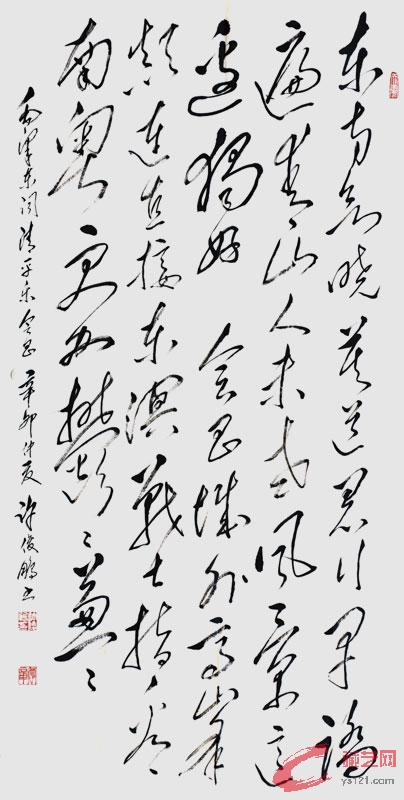 东方欲晓莫道君行早踏
遍青山人未老风景这
边獨好会昌城外高峰
颠连直接东溟戰士指看
南粤更加鬱々葱々
毛泽东词清平乐会昌辛卯仲夏许俊鹏书
ys121.com